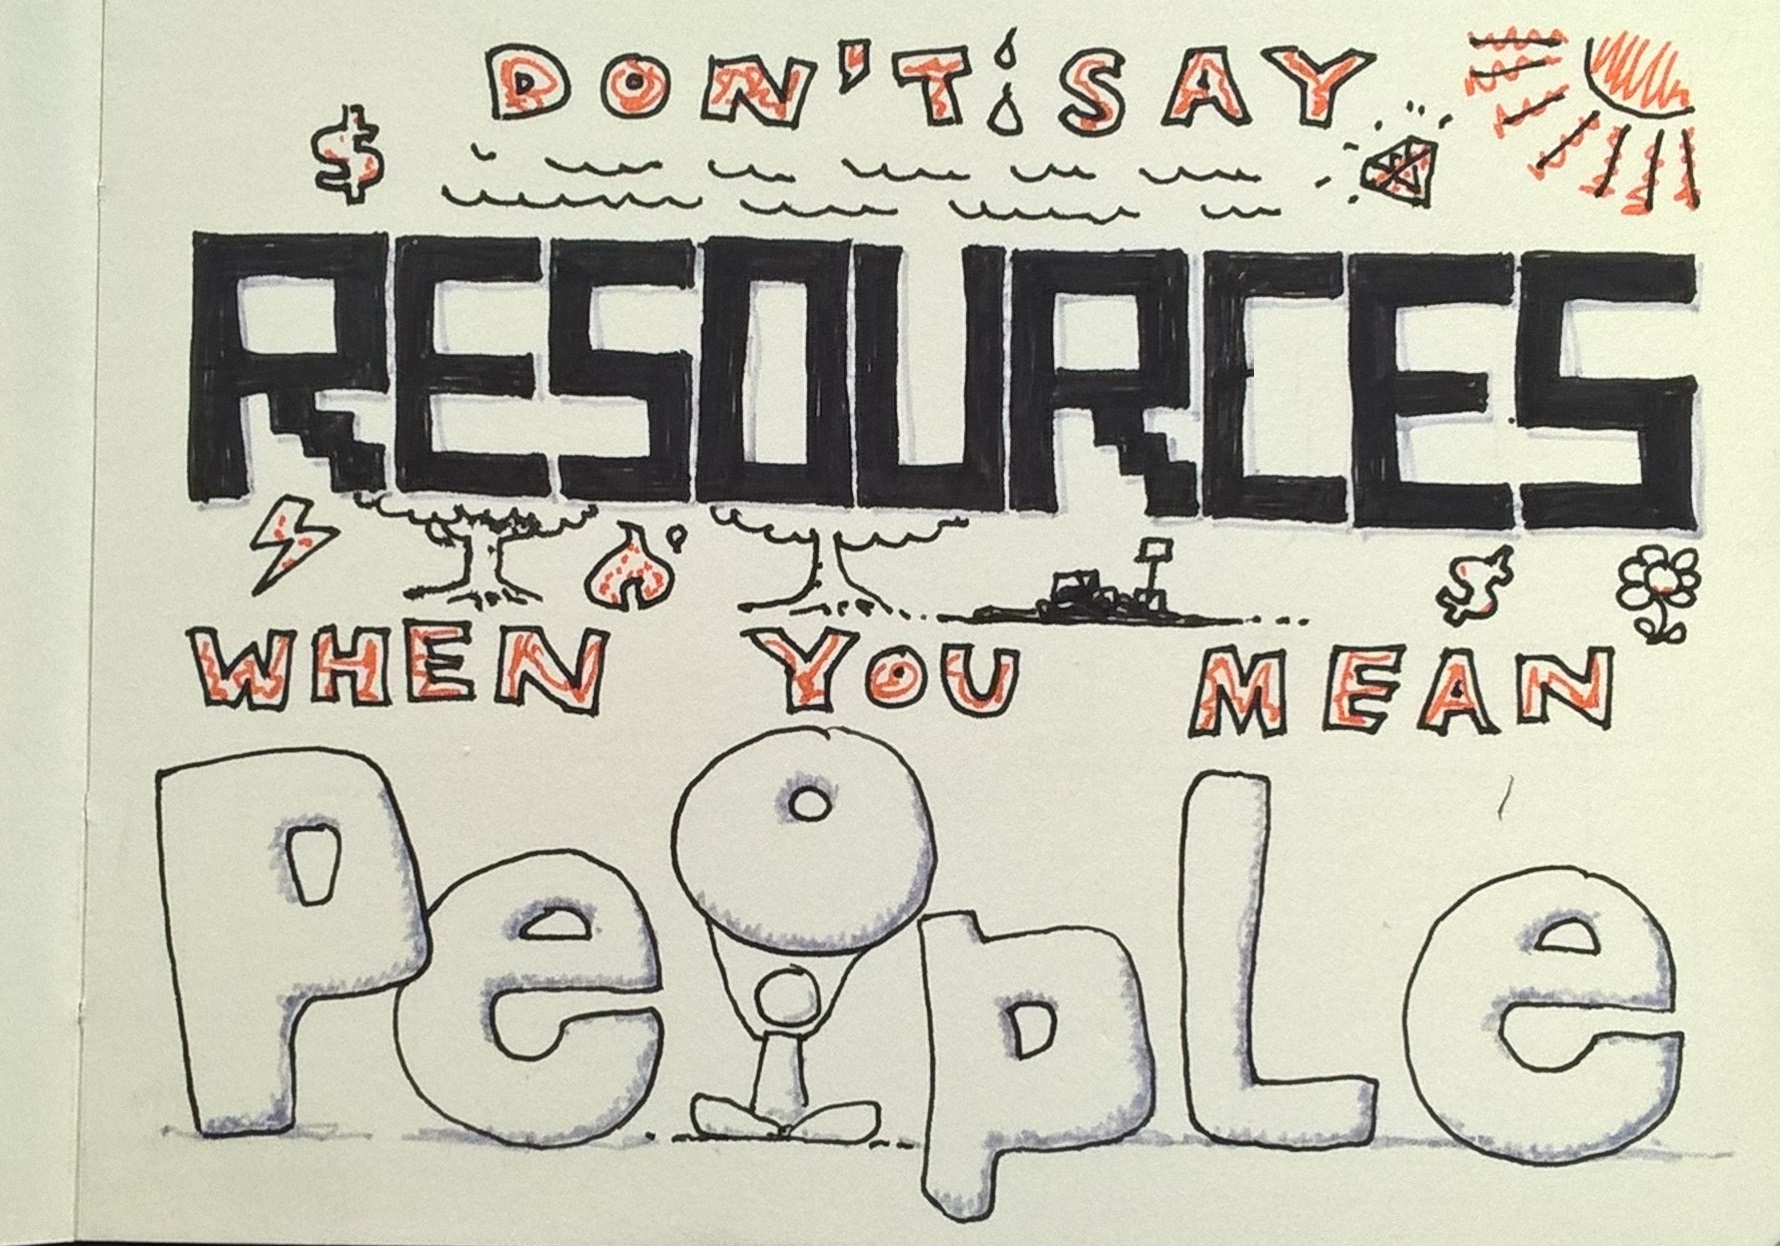 DON'T SAY
RESOURCES
WHEN YOU MEAN
PeopLe